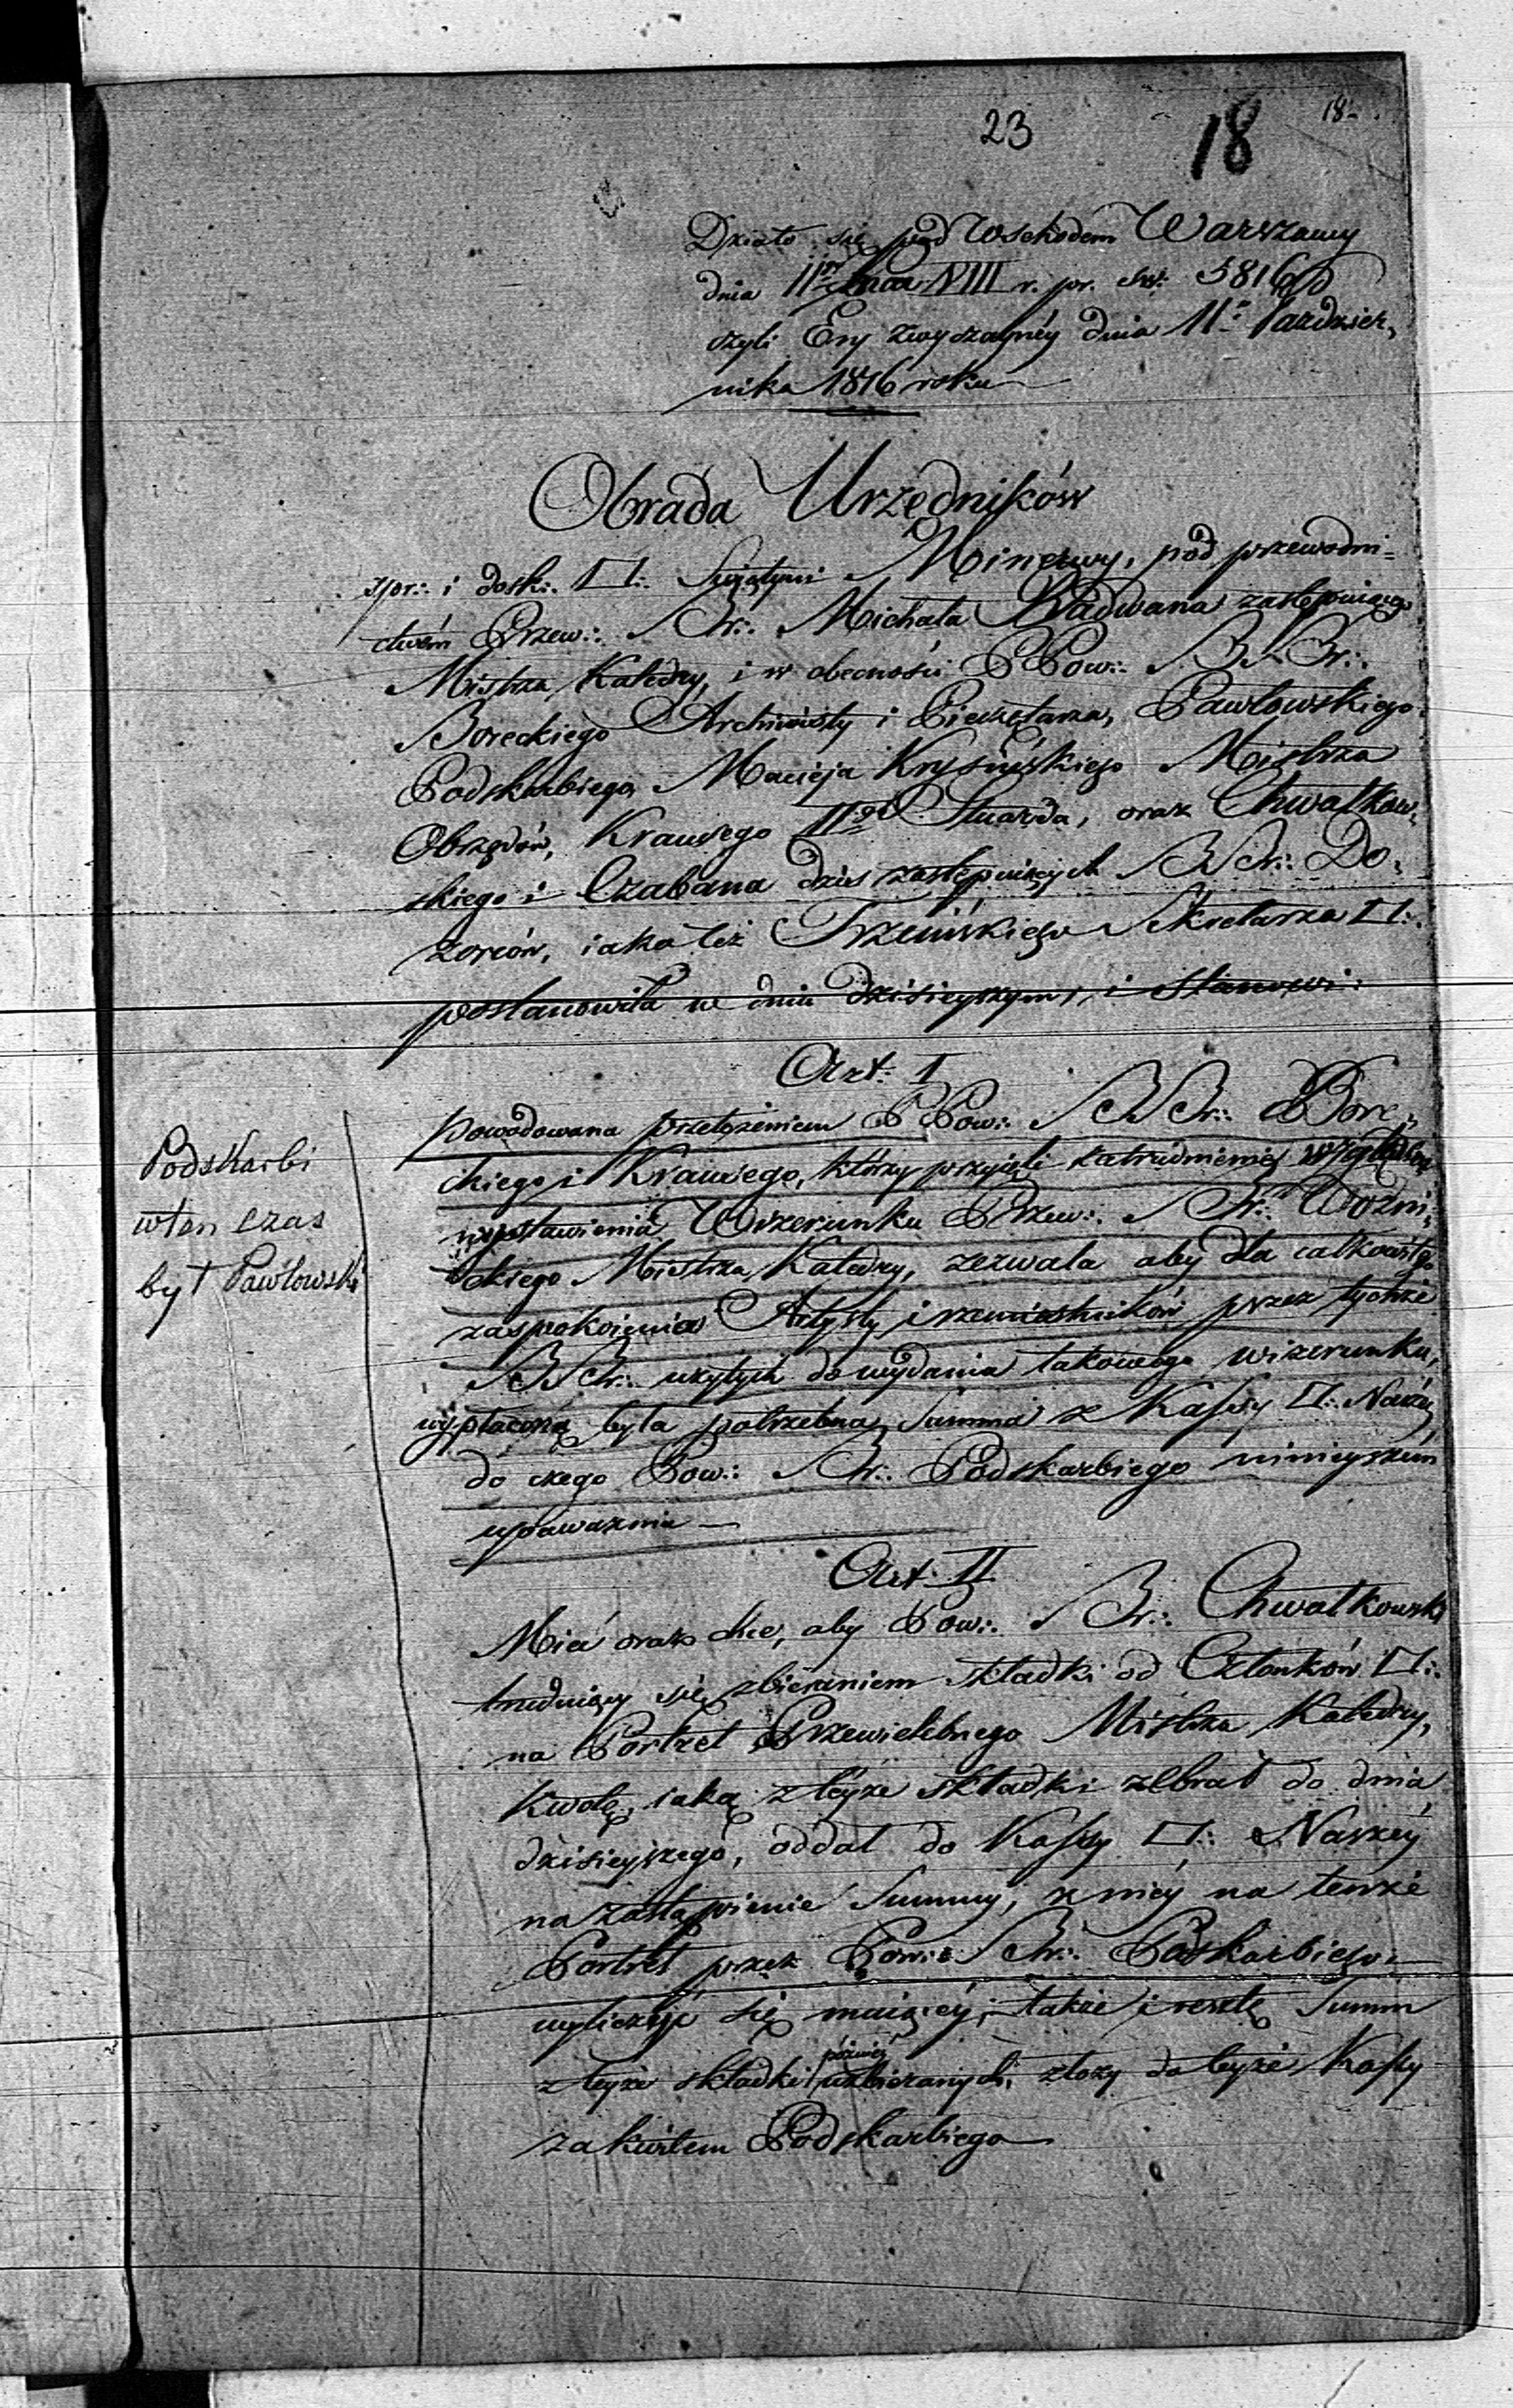 23 18 18
Działo się pod Wschodem Warszawy
dnia 11go Mca VIII r. pr. św: 5816
czyli Ery zwyczayney dnia 11o Paździer,
nika 1816 roku
Obrada Urzędników
spr:. i dosk:. □:. Świątyni Minerwy, pod przewodni-
ctwem Przew:. Br:. Michała Kadwana zastępuiącego
Mistrza Katedry, i w obecności PPow:. BBr:.
Boreckiego Archiwisty i Pieczętarza, Pawłowskiego
Podskarbiego, Macieja Krysińskiego Mistrza
Obrzędów, Krausego IIgo Stuarda, oraz Chwałkow,
skiego i Czabana dziś zastępuiących BBr:. Do,
zorców, iako też Trzcińskiego Sekretarza □:.
postanowiła w dniu dzisieyszym, i stanowi:
Art: I
powodowana przełożeniem PPow:. BBr:. Bore,
ckiego i Krausego, którzy przyięli zatrudnienie względem
wystawienia Wizerunku Przew:. Br:. Woźni,
ckiego Mistrza Katedry, zezwala aby dla całkowitego
zaspokoienia Artysty i rzemieślników przez tychże
BBr:. użytych do wydania takowego wizerunku,
wypłaconą była potrzebna Summa z Kassy □:. Naszey,
do czego Pow:. Br:. Podskarbiego ninieyszem
upoważnia —
Podskarbi
wten czas
był Pawłowski
Art: II
Mieć oraz chce, aby Pow:. Br:. Chwałkowski
trudniący się zbieraniem składki od Członków □:.
na Portret Przewielebnego Mistrza Katedry,
Kwotę, iaką z teyże składki zebrał do dnia
dzisieyszego, oddał do Kassy □:. Naszey
na zastąpienie Summy, z niey na tenże
Portret przez Pow:. Br:. Podskarbiego
wyliczyć się maiącey; także i resztę Summ
z teyże składki późniey uzbieranych, złoży do teyże Kassy
za kwitem Podskarbiego